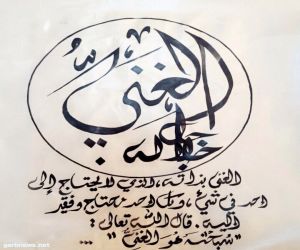 الغني
جل جلاله
الغني بذاته، الذي لا يحتاج إلى
أحد في شيء، وكل أحد محتاج وفقير
إليه. قال الله تعالى:
"سبحانه هو الغني" ...